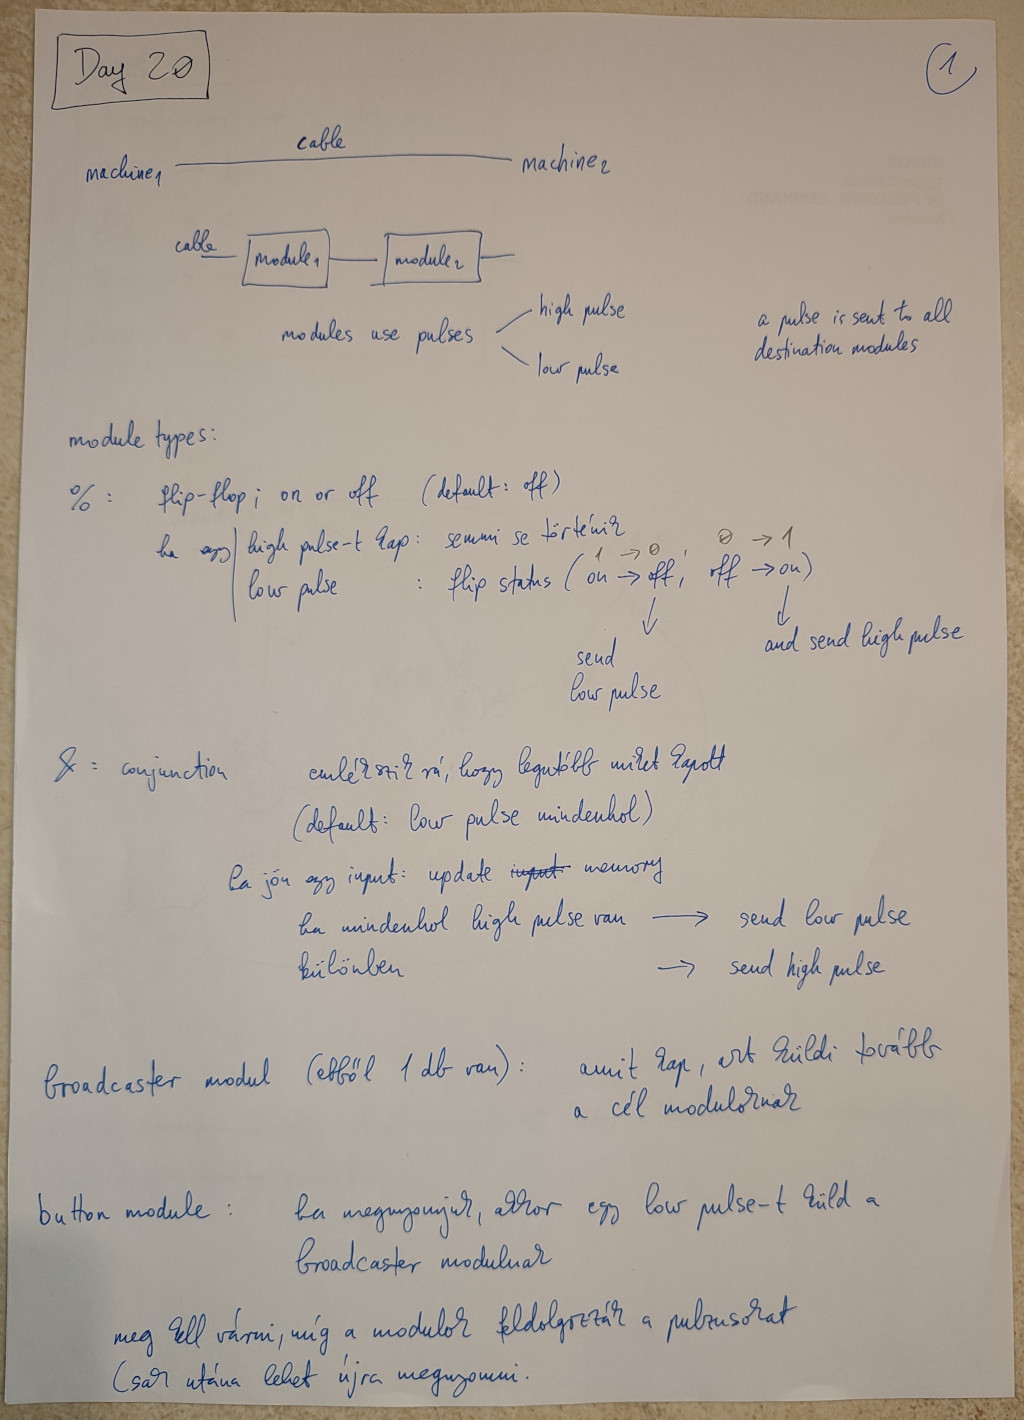 Day 20
1
cable
machine1 machine2
cable module1 module2
modules use pulses
high pulse
low pulse
a pulse is sent to all
destination modules
module types:
%: flip-flop; on or off (default: off)
ha egy high pulse-t kap: semmi se történik
1 → 0 0 → 1
low pulse : flip status (on → off; off → on)
↓ ↓
send
low pulse
and send high pulse
& : conjunction emlékszik rá, hogy legutóbb miket kapott
(default: low pulse mindenhol)
ha jön egy input: update input memory
ha mindenhol high pulse van → send low pulse
különben → send high pulse
broadcaster modul (ebből 1 db van): amit kap, azt küldi tovább
a cél moduloknak
button module: ha megnyomjuk, akkor egy low pulse-t küld a
broadcaster modulnak
meg kell várni, míg a modulok feldolgozzák a pulzusokat
(csak utána lehet újra megnyomni.